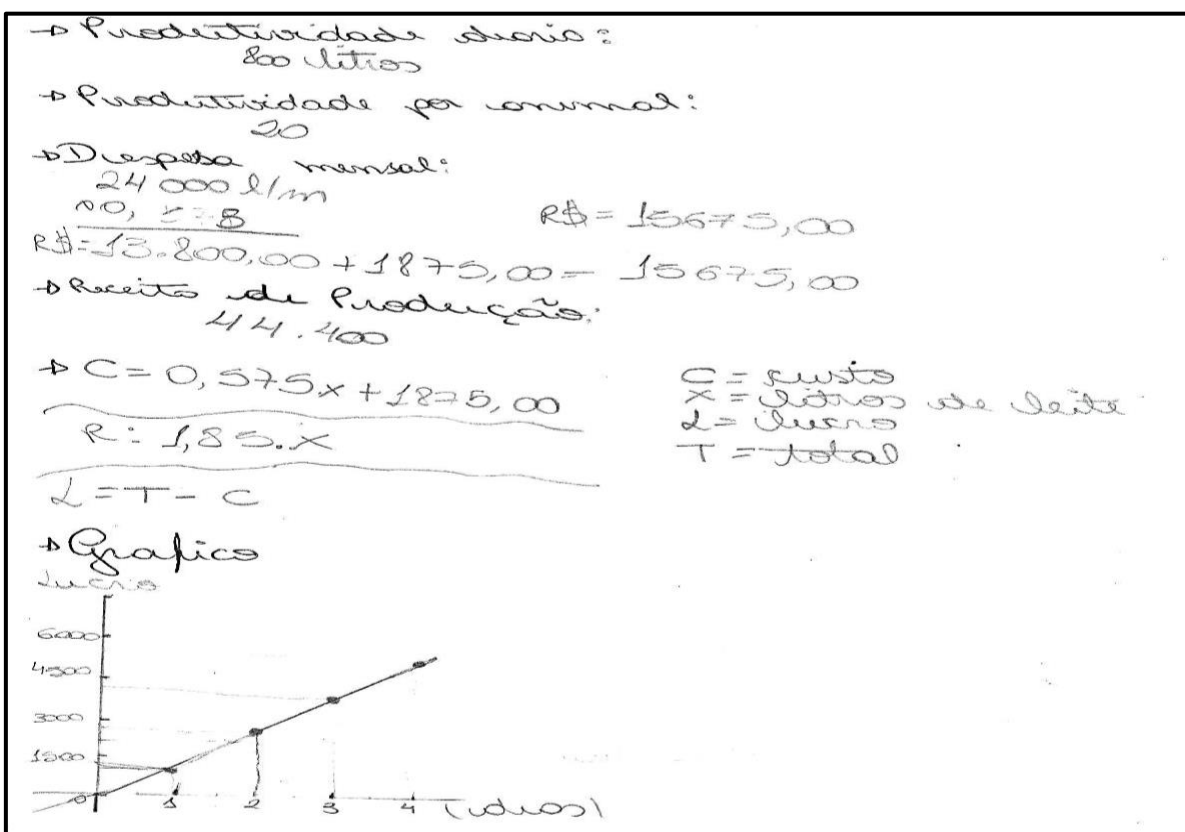 → Produtividade diaria:
800 litros
→ Produtividade por animal:
20
→ Despesa mensal:
24 000 l/m
R$ = 15675,00
R$ = 13.800,00 + 1875,00 = 15675,00
→ Receita de Produção:
44.400
→ C = 0,575.x + 1875,00
R: 1,85.x
L = T - C
C = custo
x = litros de leite
L = lucro
T = total
→ Grafico
Lucro
6000
4500
3000
1500
0
1 2 3 4 (dias)